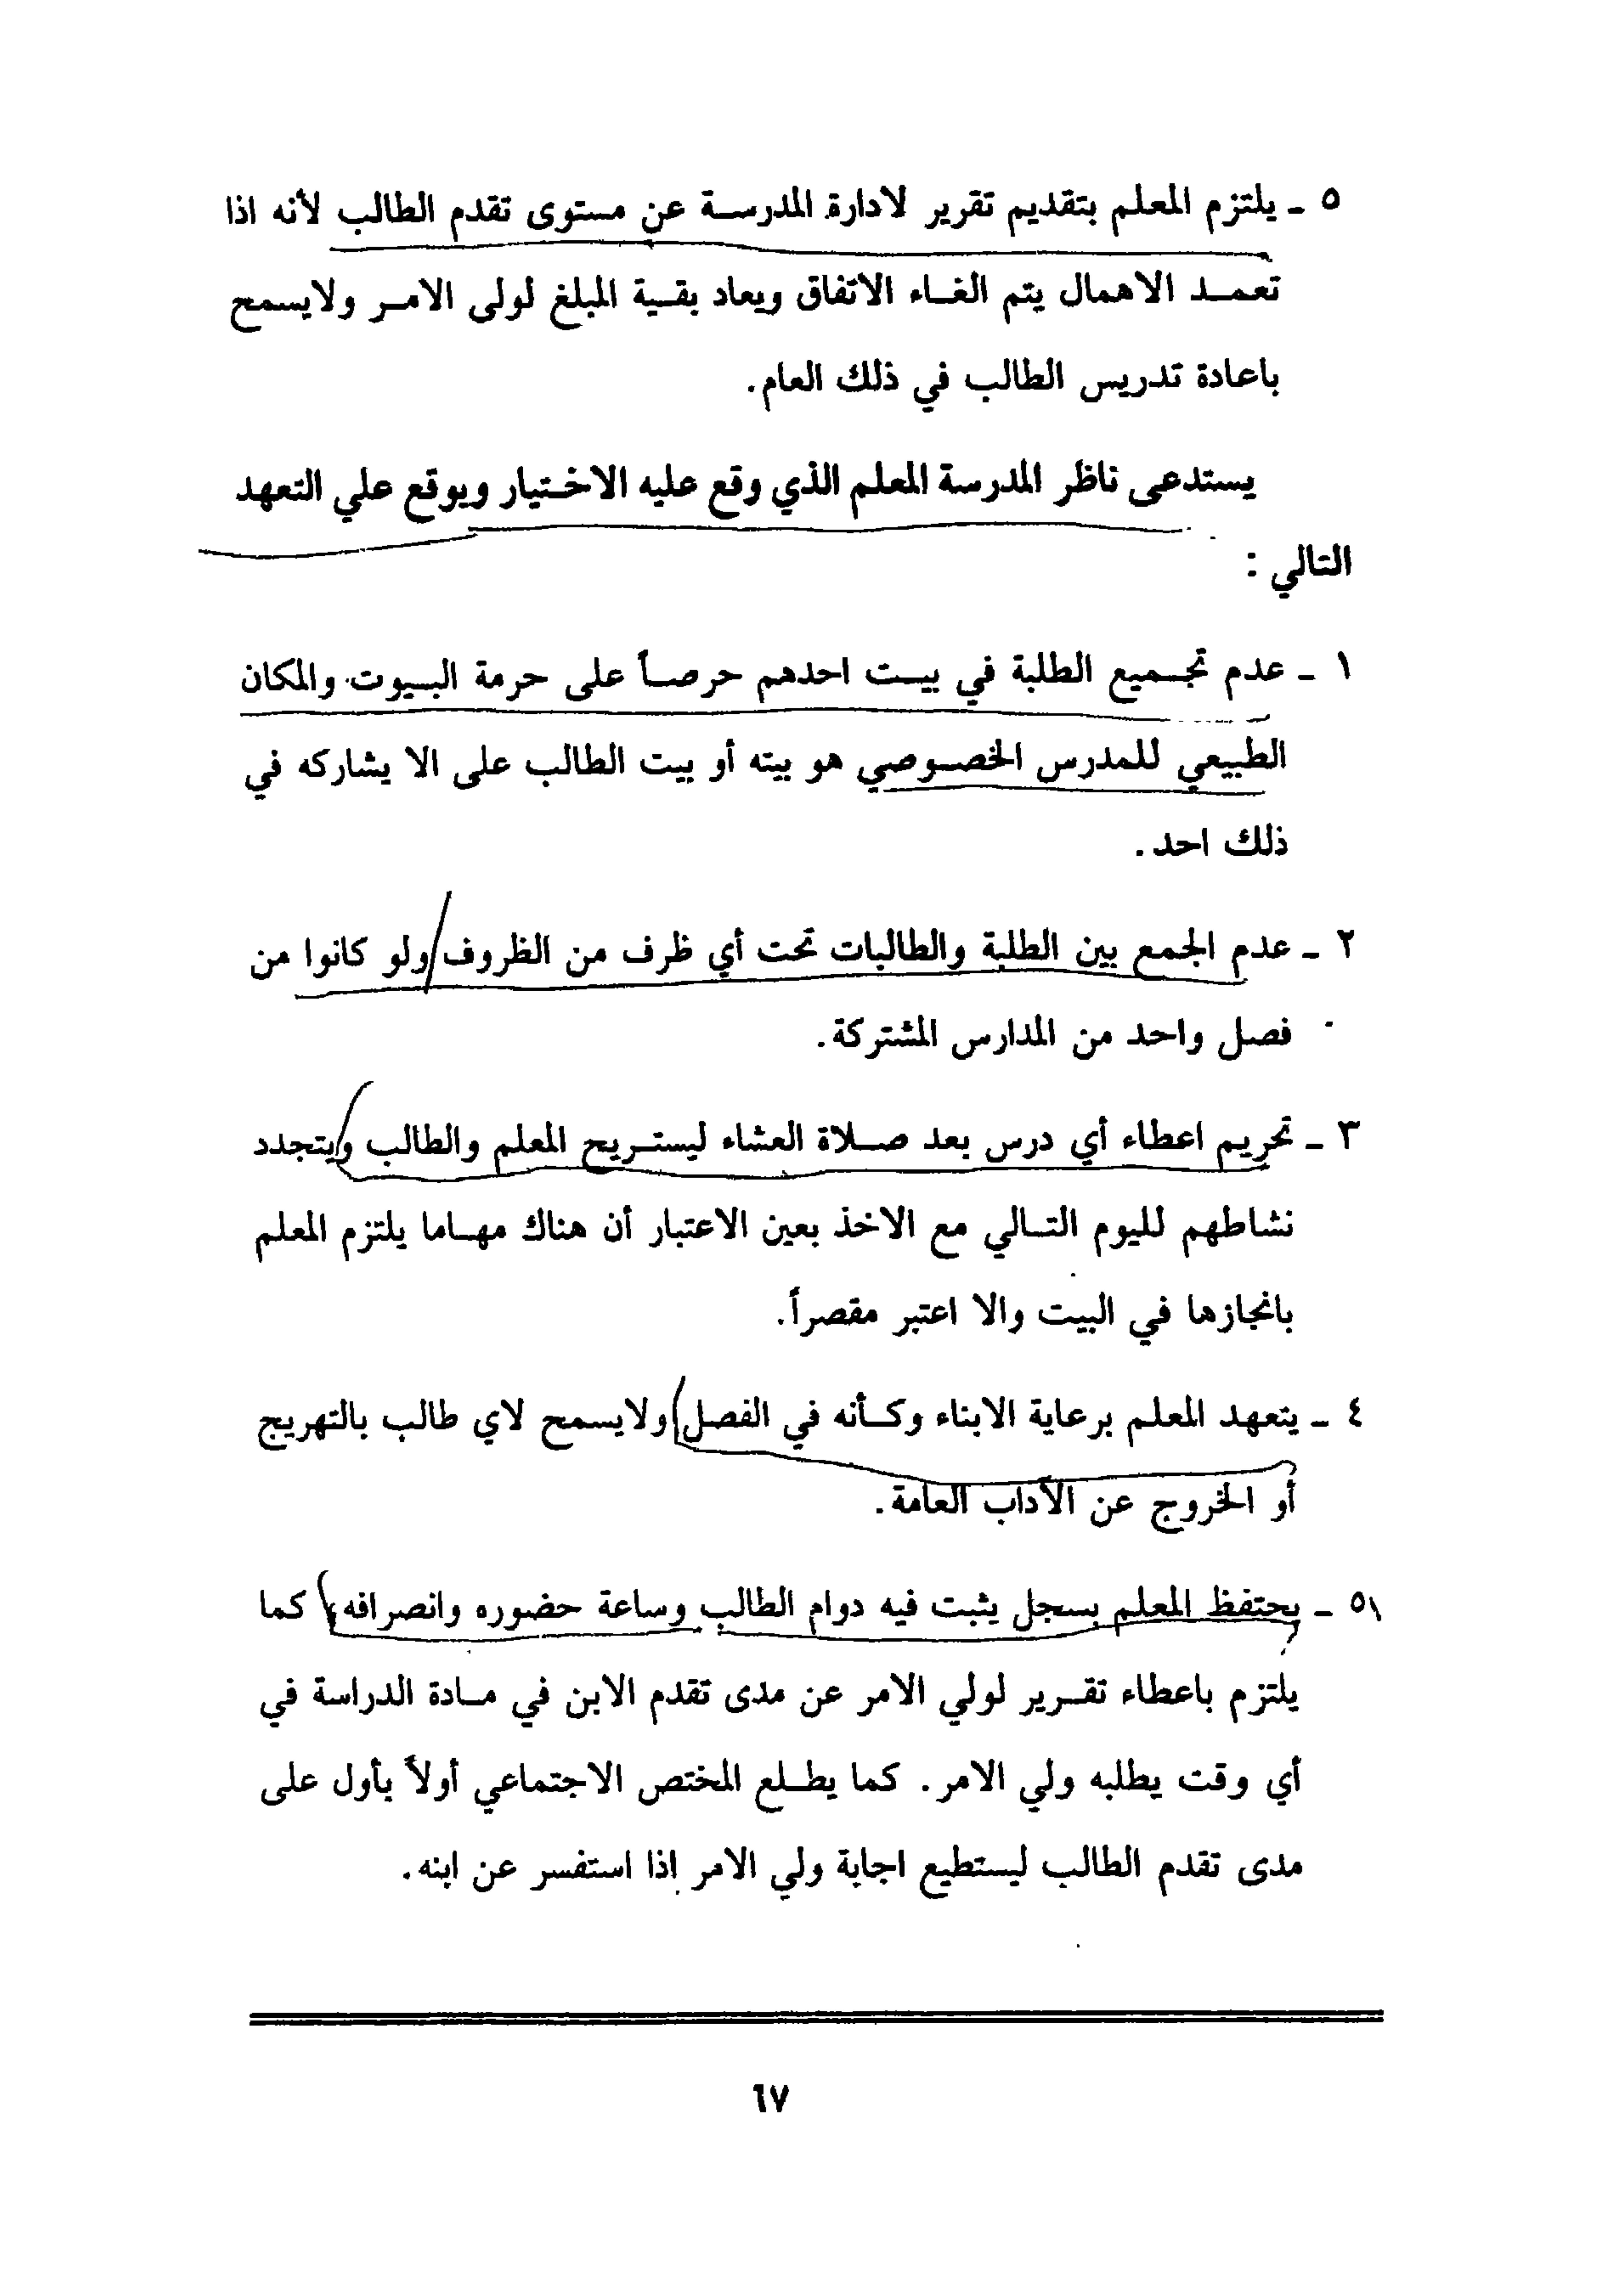 ٥ ـ يلتزم المعلم بتقديم تقرير لادارة المدرسة عن مستوى تقدم الطالب لأنه اذا
تعمد الاهمال يتم الغاء الاتفاق ويعاد بقية المبلغ لولى الامر ولايسمح
باعادة تدريس الطالب في ذلك العام.
يستدعى ناظر المدرسة المعلم الذي وقع عليه الاختيار ويوقع علي التعهد
التالي :
١ ـ عدم تجميع الطلبة في بيت احدهم حرصاً على حرمة البيوت والمكان
الطبيعي للمدرس الخصوصي هو بيته أو بيت الطالب على الا يشاركه في
ذلك احد.
٢ ـ عدم الجمع بين الطلبة والطالبات تحت أي ظرف من الظروف ولو كانوا من
فصل واحد من المدارس المشتركة.
٣ ـ تحريم اعطاء أي درس بعد صلاة العشاء ليستريح المعلم والطالب ويتجدد
نشاطهم لليوم التالي مع الاخذ بعين الاعتبار أن هناك مهاما يلتزم المعلم
بانجازها في البيت والا اعتبر مقصراً.
٤ ـ يتعهد المعلم برعاية الابناء وكأنه في الفصل ولايسمح لاي طالب بالتهريج
أو الخروج عن الآداب العامة.
٥ ـ يحتفظ المعلم بسجل يثبت فيه دوام الطالب وساعة حضوره وانصرافه، كما
يلتزم باعطاء تقرير لولي الامر عن مدى تقدم الابن في مادة الدراسة في
أي وقت يطلبه ولي الامر. كما يطلع المختص الاجتماعي أولاً بأول على
مدى تقدم الطالب ليستطيع اجابة ولي الامر إذا استفسر عن ابنه.
٦٧